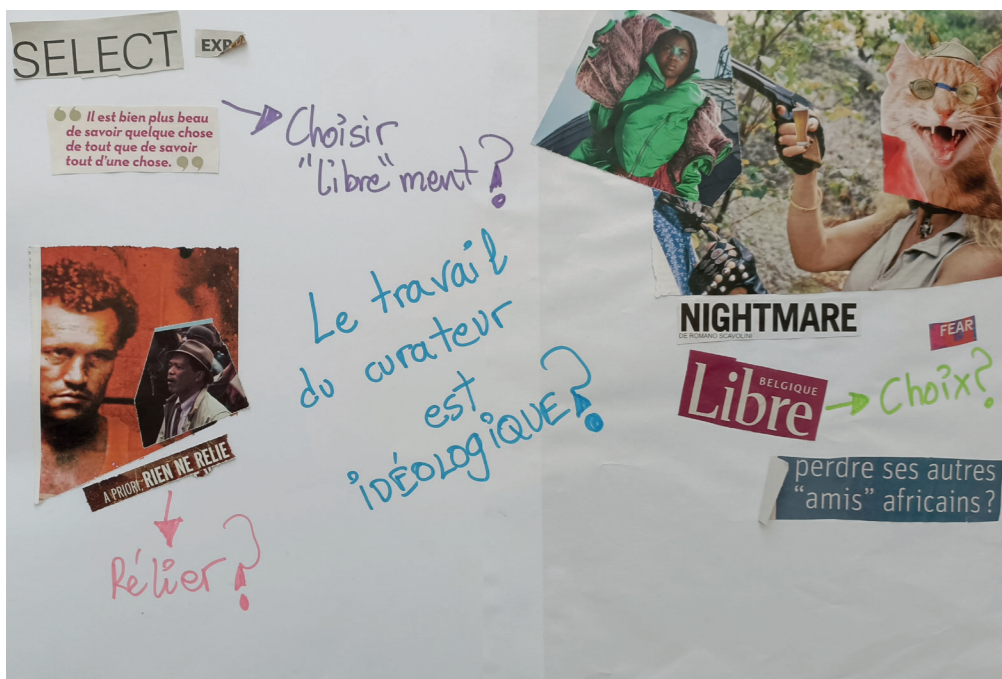 SELECT
EXP
“ Il est bien plus beau
de savoir quelque chose
de tout que de savoir
tout d'une chose. ”
Choisir
"libre"ment ?
Le travail
du curateur
est
iDÉOLOGiQUE ?
A PRIORI, RIEN NE RELIE
Rélier ?
NIGHTMARE
DE ROMANO SCAVOLINI
FEAR
Libre
BELGIQUE
Choix ?
perdre ses autres
“amis” africains ?